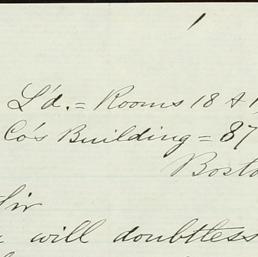 L'd. = Rooms 18 &
Co's Building = 87
Bosto
Sir
will doubtless